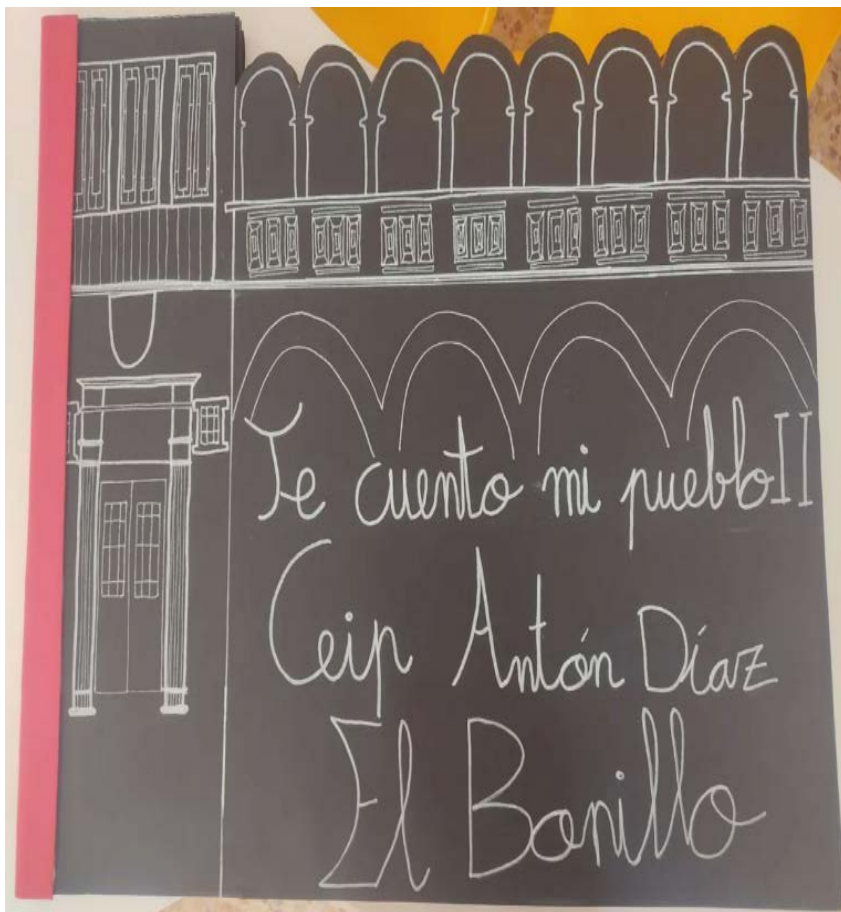 Te cuento mi pueblo II
Ceip Antón Díaz
El Bonillo